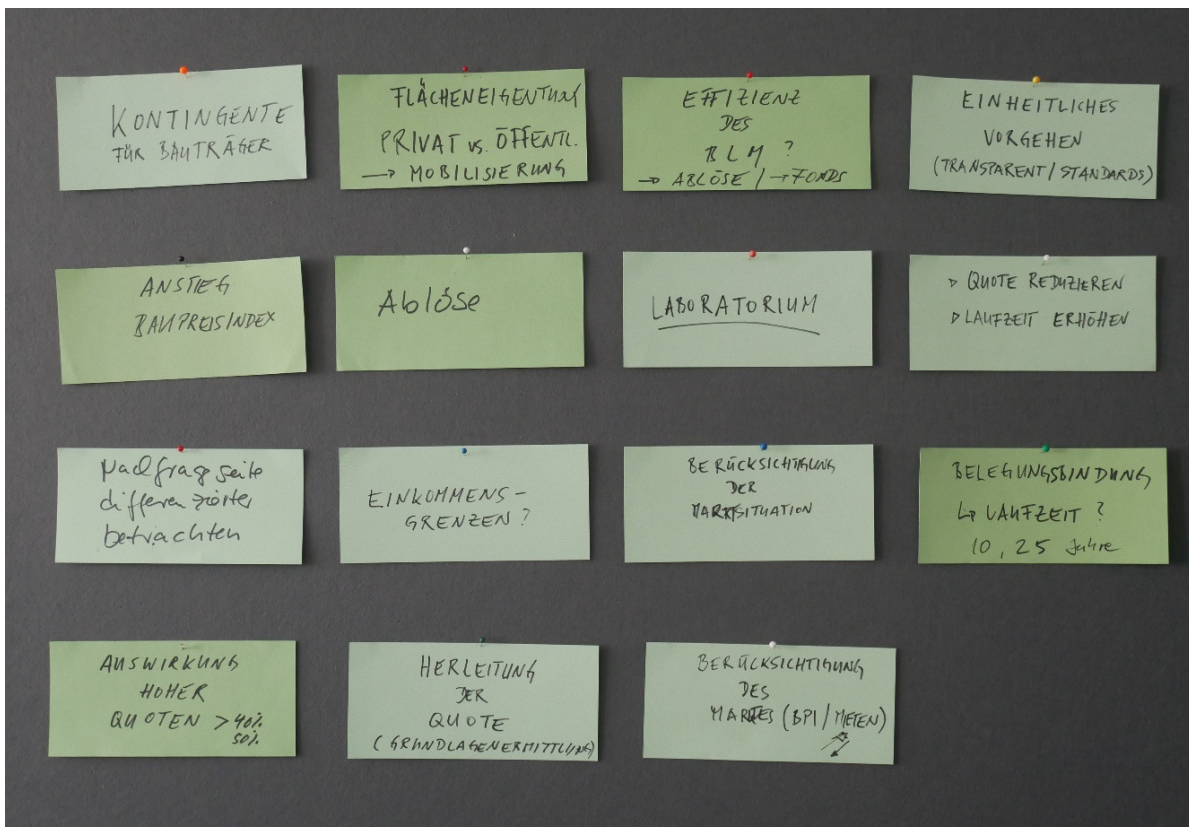 KONTINGENTE
FÜR BAUTRÄGER
FLÄCHENEIGENTUM
PRIVAT vs. ÖFFENTL.
→ MOBILISIERUNG
EFFIZIENZ
DES
BLM ?
→ ABLÖSE / → FONDS
EINHEITLICHES
VORGEHEN
(TRANSPARENT / STANDARDS)
ANSTIEG
BAUPREISINDEX
Ablöse
LABORATORIUM
▷ QUOTE REDUZIEREN
▷ LAUFZEIT ERHÖHEN
Nachfrageseite
differenzierter
betrachten
EINKOMMENS-
GRENZEN?
BERÜCKSICHTIGUNG
DER
MARKTSITUATION
BELEGUNGSBINDUNG
↳ LAUFZEIT ?
10, 25 Jahre
AUSWIRKUNG
HOHER
QUOTEN > 40%
50%
HERLEITUNG
DER
QUOTE
(GRUNDLAGENERMITTLUNG)
BERÜCKSICHTIGUNG
DES
MARKTES (BPI / MIETEN)